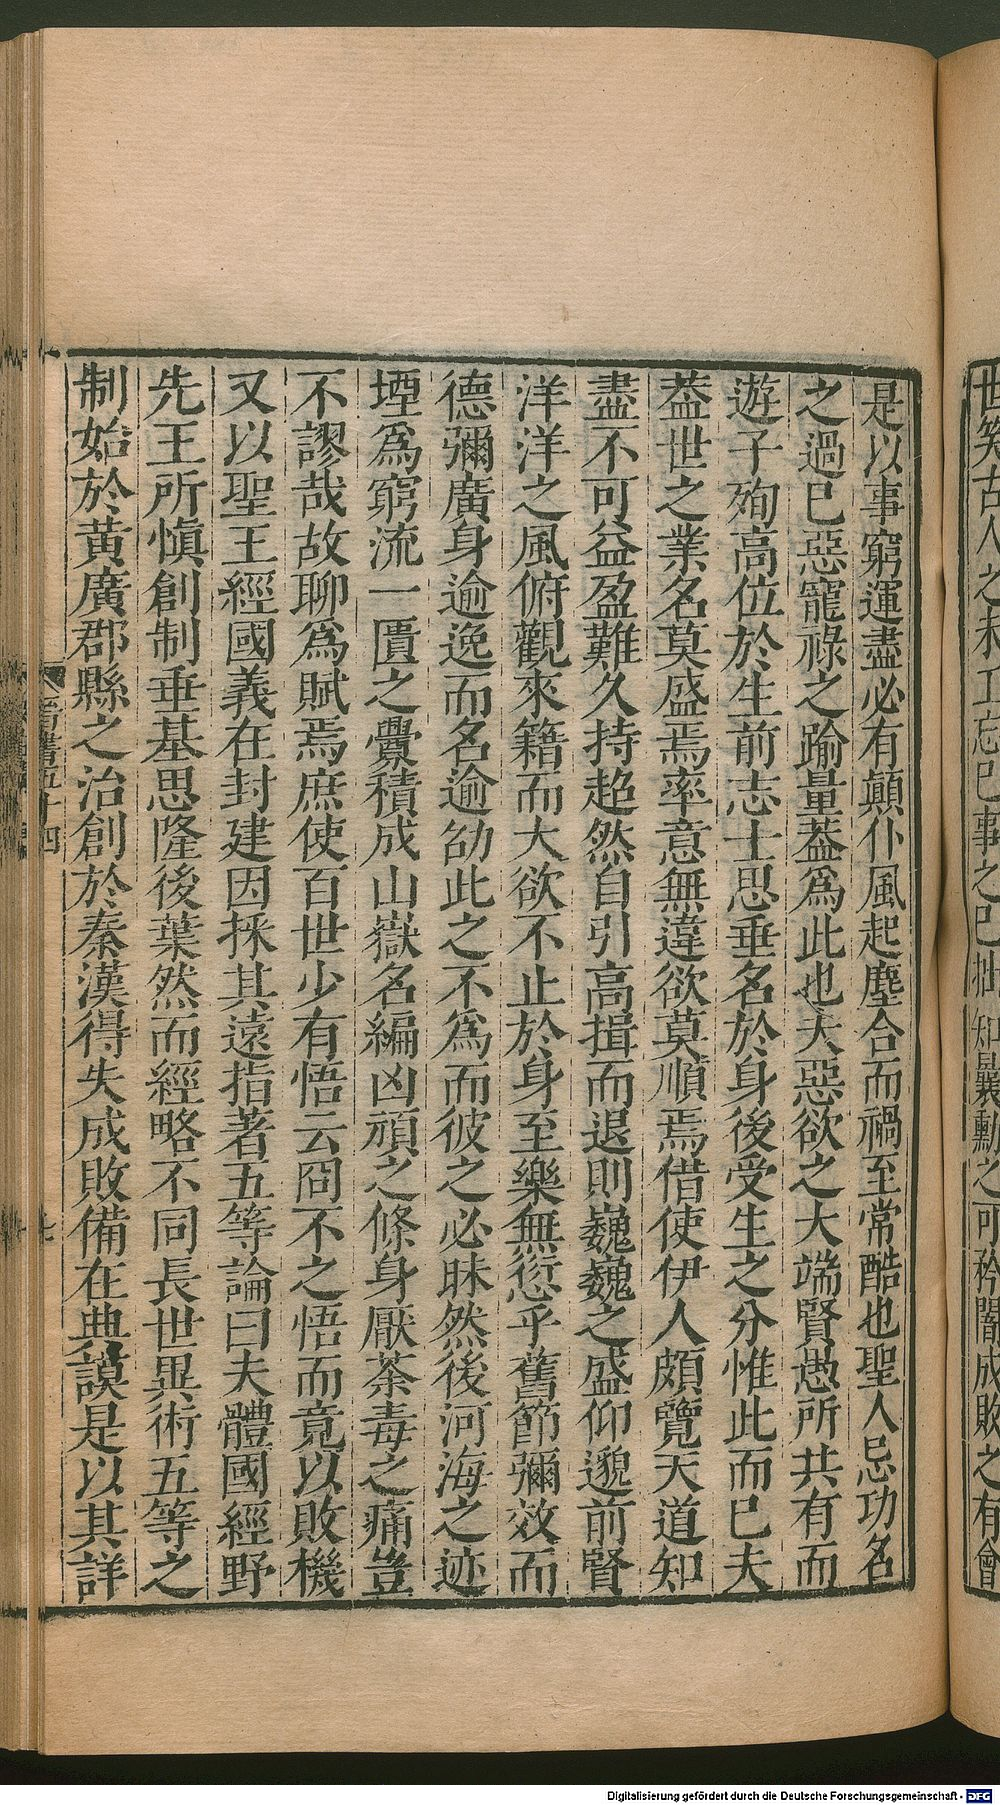 世笑古人之未工忘己事之已拙知曩勳之可矜闇成敗之有會
是以事窮運盡必有顛仆風起塵合而禍至常酷也聖人忌功名
之過已惡寵祿之踰量蓋爲此也夫惡欲之大端賢愚所共有而
遊子殉高位於生前志士思垂名於身後受生之分惟此而已夫
蓋世之業名莫盛焉率意無違欲莫順焉借使伊人頗覽天道知
盡不可益盈難久持超然自引高揖而退則巍巍之盛仰邈前賢
洋洋之風俯觀來籍而大欲不止於身至樂無愆乎舊節彌效而
德彌廣身逾逸而名逾劭此之不爲而彼之必昧然後河海之迹
堙爲窮流一匱之舋積成山嶽名編凶頑之條身厭荼毒之痛豈
不謬哉故聊爲賦焉庶使百世少有悟云冏不之悟而竟以敗機
又以聖王經國義在封建因採其遠指著五等論曰夫體國經野
先王所愼創制垂基思隆後葉然而經略不同長世異術五等之
制始於黃廣郡縣之治創於秦漢得失成敗備在典謨是以其詳
晋書五十四
Digitalisierung gefördert durch die Deutsche Forschungsgemeinschaft - DFG